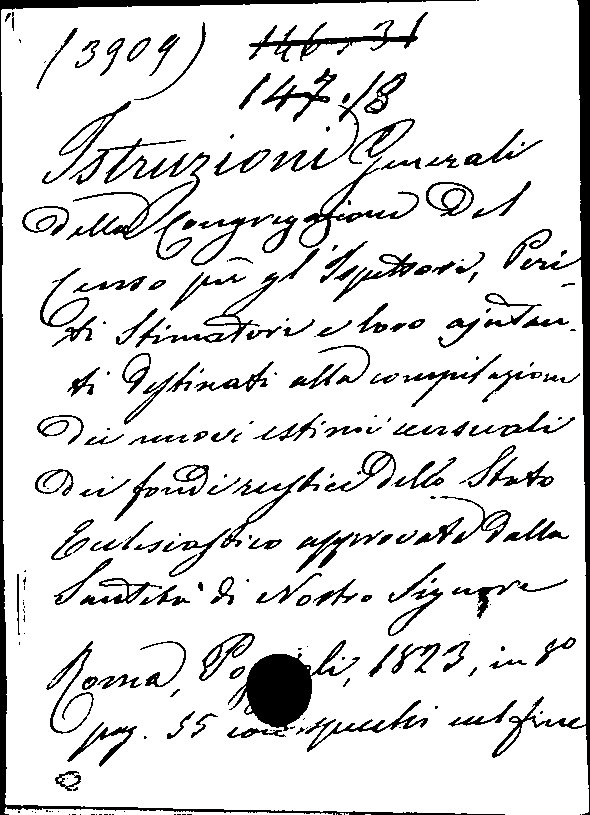 (3909) 146.31
147.18
Istruzioni Generali
della Congregazione Del
Censo per gl'Ispettori, Peri-
ti Stimatori e loro ajutan-
ti Destinati alla compilazione
Dei nuovi estimi censuali
Dei fondi rustici Dello Stato
Eclesiastico approvata Dalla
Santità di Nostro Signore
Roma, Poggioli, 1823, in 8º
pag. 55 con specchi nel fine